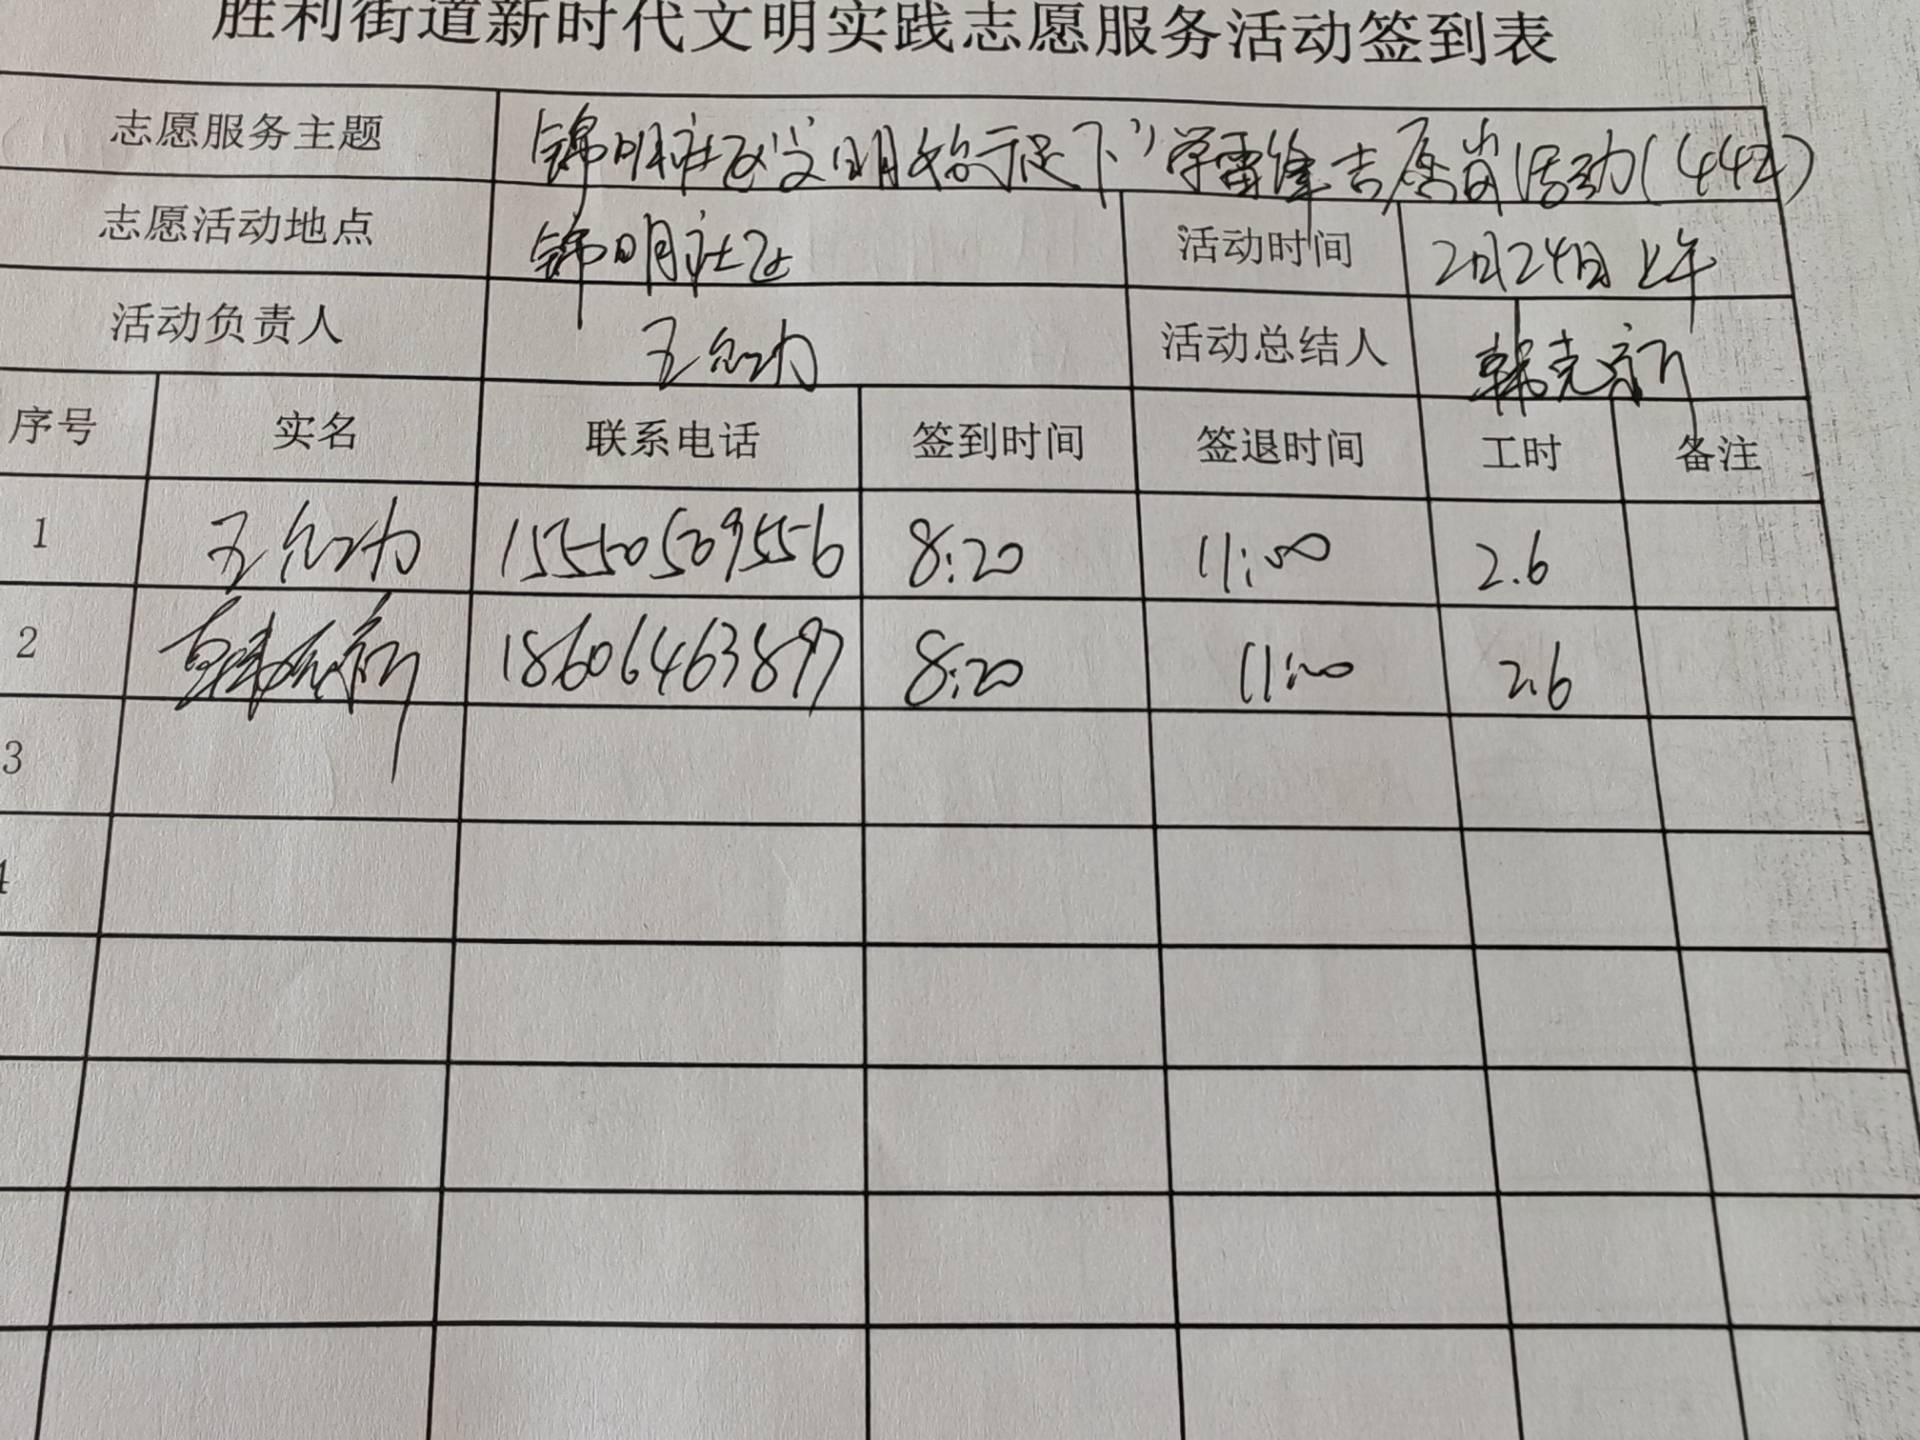 胜利街道新时代文明实践志愿服务活动签到表
志愿服务主题 锦明社区“文明始于足下”学雷锋志愿者活动(442)
志愿活动地点 锦明社区 活动时间 2月24日上午
活动负责人 王 功 活动总结人 韩克新
序号 实名 联系电话 签到时间 签退时间 工时 备注
1 王 功 15550509556 8:20 11:00 2.6
2 韩克新 18606463897 8:20 11:00 2.6
3
4